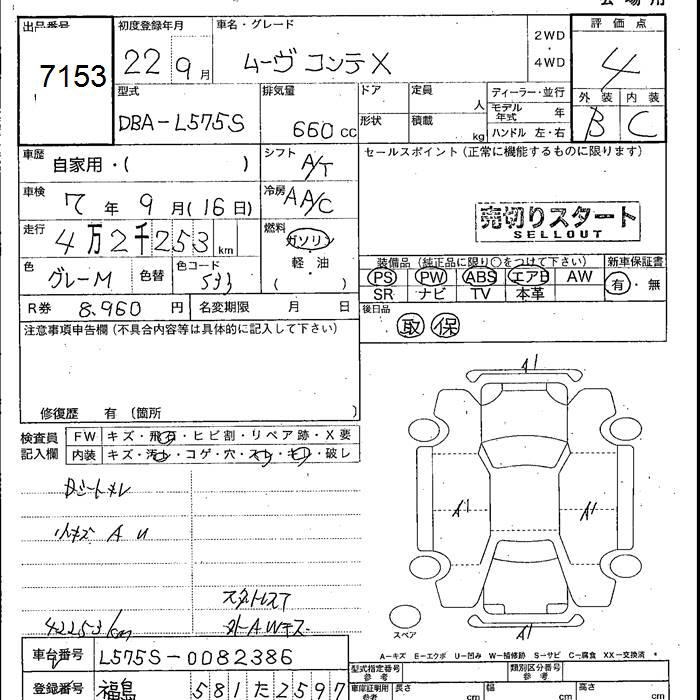 出品番号 初度登録年月 車名・グレード 評価点
7153 22 9月 ムーヴ コンテ X 2WD・4WD 4
型式 排気量 ドア 定員 人 ディーラー・並行 外装 内装
DBA-L575S 660cc 形状 積載 kg モデル年式 年 B C
ハンドル 左・右
車歴 自家用・( ) シフト A/T セールスポイント(正常に機能するものに限ります)
車検 7年 9月(16日) 冷房 AA/C
売切りスタート
SELLOUT
走行 4万2千253km 燃料 ガソリン
軽・油
( )
色 グレーM 色替 色コード 533
装備品(純正品に限り○をつけて下さい) 新車保証書
PS PW ABS エアB AW 有・無
SR ナビ TV 本革
R券 8,960円 名変期限 月 日 後日品
注意事項申告欄(不具合内容等は具体的に記入して下さい) 取 保
修復歴 有(箇所 )
検査員記入欄 FW キズ・飛石・ヒビ割・リペア跡・X要
内装 キズ・汚レ・コゲ・穴・スレ・キレ・破レ
A1
A1 A1
A1
小キズ A U
スタトレスT
42253km
スペア
A−キズ E−エクボ U−凹み W−補修跡 S−サビ C−腐食 XX−交換済
車台番号 L575S-0082386 型式指定番号 参考 類別区分番号 参考
登録番号 福島 581 た 2597 車庫証明用参考 長さ cm 幅 cm 高さ cm